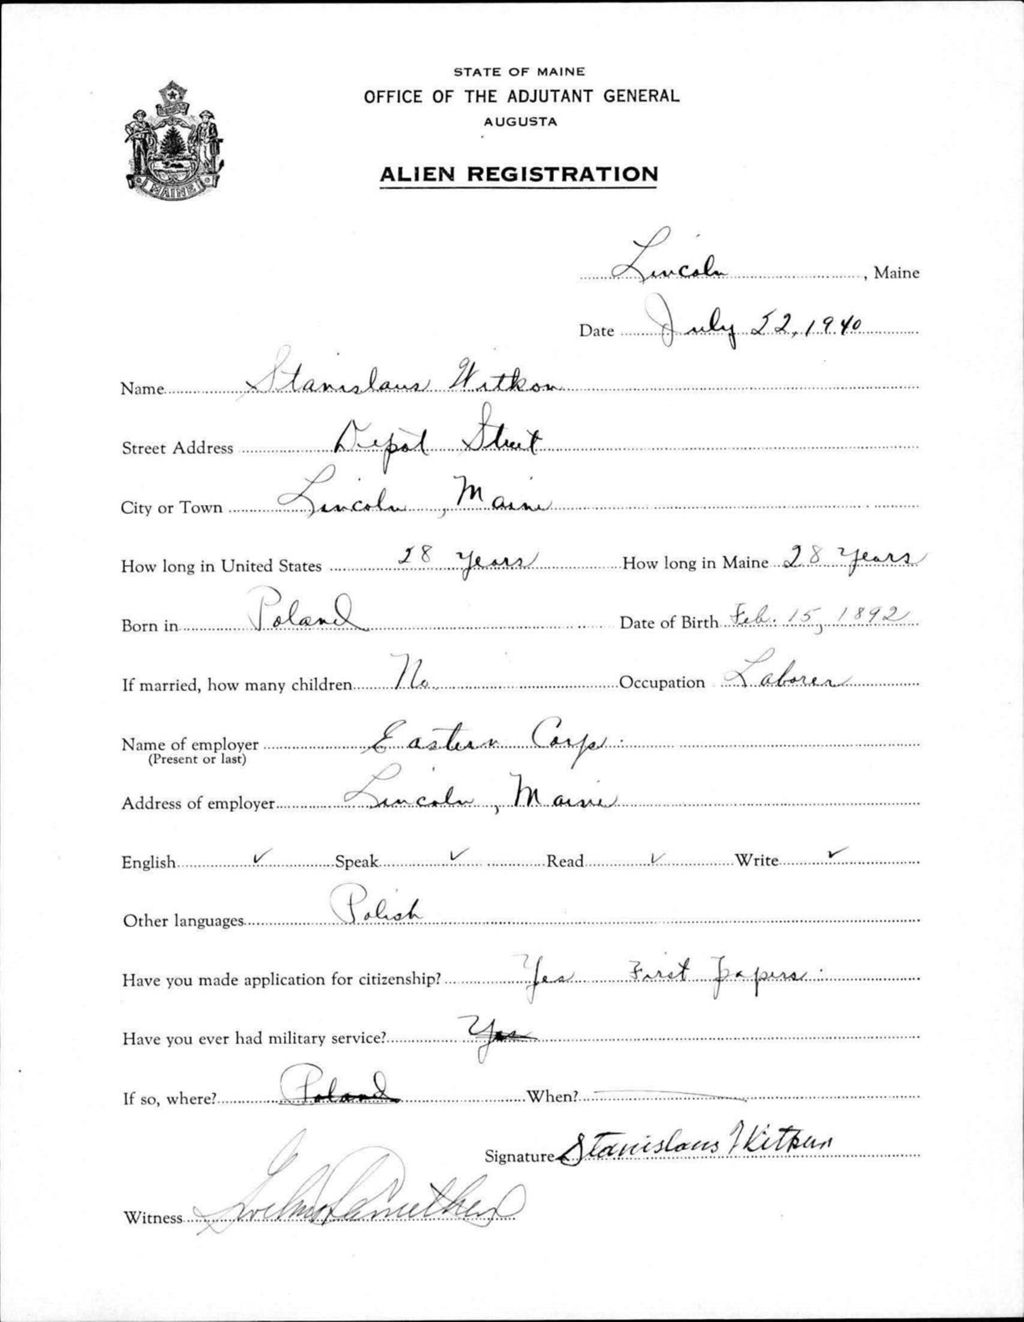 STATE OF MAINE
OFFICE OF THE ADJUTANT GENERAL
AUGUSTA
ALIEN REGISTRATION
MAINE
Lincoln, Maine
Date July 22, 1940
Name Stanislaus Witkon
Street Address Depot Street
City or Town Lincoln, Maine
How long in United States 28 years How long in Maine 28 years
Born in Poland Date of Birth Feb. 15, 1892
If married, how many children No Occupation Laborer
Name of employer Eastern Corp.
(Present or last)
Address of employer Lincoln, Maine
English ✓ Speak ✓ Read ✓ Write ✓
Other languages Polish
Have you made application for citizenship? Yes First papers.
Have you ever had military service? Yes
If so, where? Poland When? —
Signature Stanislaus
Witness